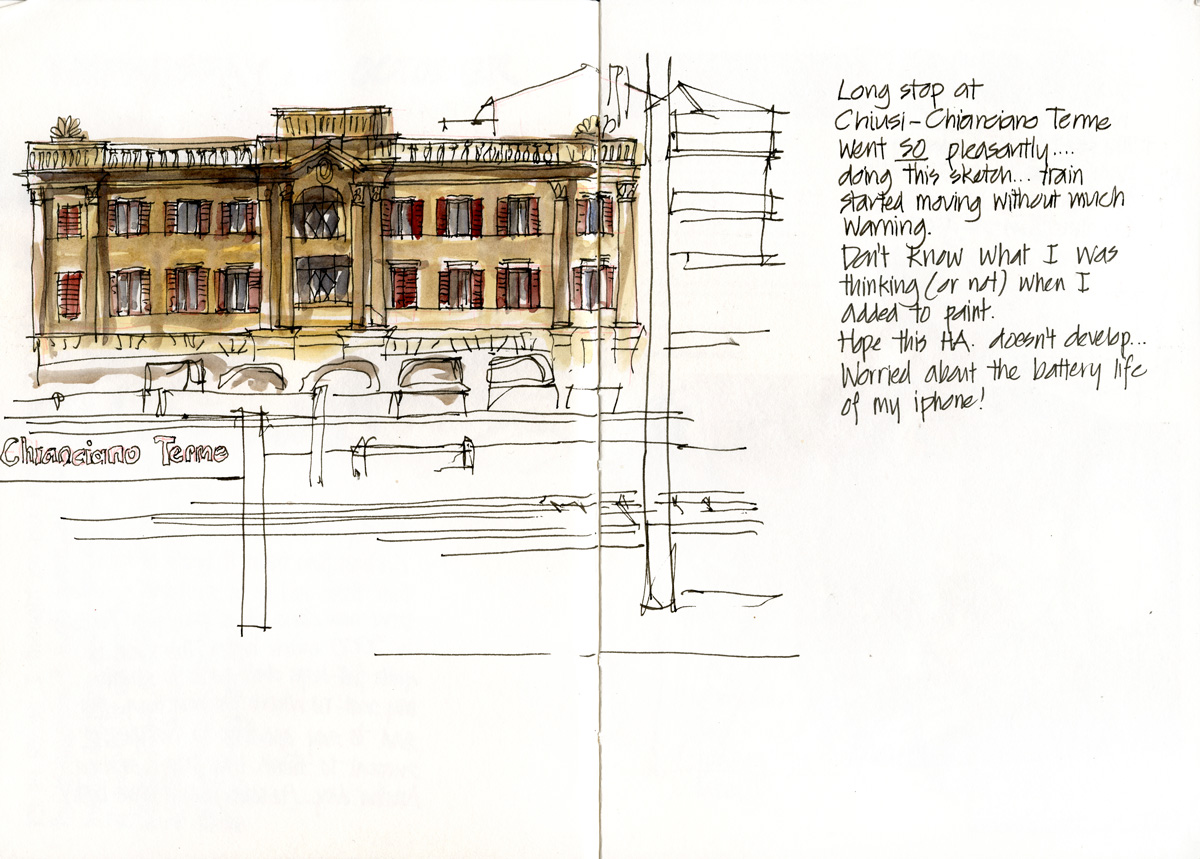 Long stop at
Chiusi-Chianciano Terme
went SO pleasantly....
doing this sketch... train
started moving without much
warning.
Don't know what I was
thinking (or not) when I
added to paint.
Hope this HA. doesn't develop...
Worried about the battery life
of my iphone!
Chianciano Terme